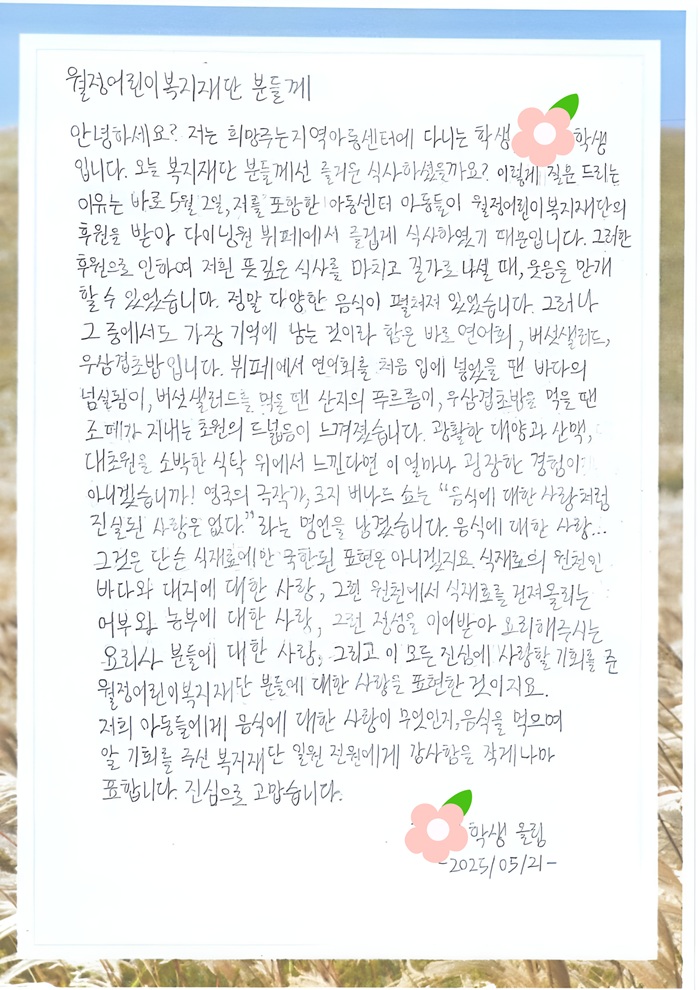 월정어린이복지재단 분들께
안녕하세요? 저는 희망주는지역아동센터에 다니는 학생 학생
입니다. 오늘 복지재단 분들께선 즐거운 식사하셨을까요? 이렇게 질문 드리는
이유는 바로 5월 2일, 저를 포함한 아동센터 아동들이 월정어린이복지재단의
후원을 받아 다이닝원 뷔페에서 즐겁게 식사하였기 때문입니다. 그러한
후원으로 인하여 저흰 뜻깊은 식사를 마치고 길가로 나설 때, 웃음을 만개
할 수 있었습니다. 정말 다양한 음식이 펼쳐져 있었습니다. 그러나
그 중에서도 가장 기억에 남는 것이라 함은 바로 연어회, 버섯샐러드,
우삼겹초밥입니다. 뷔페에서 연어회를 처음 입에 넣었을 땐 바다의
넘실림이, 버섯샐러드를 먹을 땐 산지의 푸르름이, 우삼겹초밥을 먹을 땐
소떼가 지내는 초원의 드넓음이 느껴졌습니다. 광활한 대양과 산맥,
대초원을 소박한 식탁 위에서 느낀다면 이 얼마나 굉장한 경험이
아니겠습니까! 영국의 극작가, 조지 버나드 쇼는 “음식에 대한 사랑처럼
진실된 사랑은 없다.”라는 명언을 남겼습니다. 음식에 대한 사랑...
그것은 단순 식재료에만 국한된 표현은 아니겠지요. 식재료의 원천인
바다와 대지에 대한 사랑, 그런 원천에서 식재료를 건져올리는
어부와 농부에 대한 사랑, 그런 정성을 이어받아 요리해주시는
요리사 분들에 대한 사랑, 그리고 이 모든 진심에 사랑할 기회를 준
월정어린이복지재단 분들에 대한 사랑을 표현한 것이지요.
저희 아동들에게 음식에 대한 사랑이 무엇인지, 음식을 먹으며
알 기회를 주신 복지재단 일원 전원에게 감사함을 작게나마
표합니다. 진심으로 고맙습니다.
학생 올림
-2025/05/21-